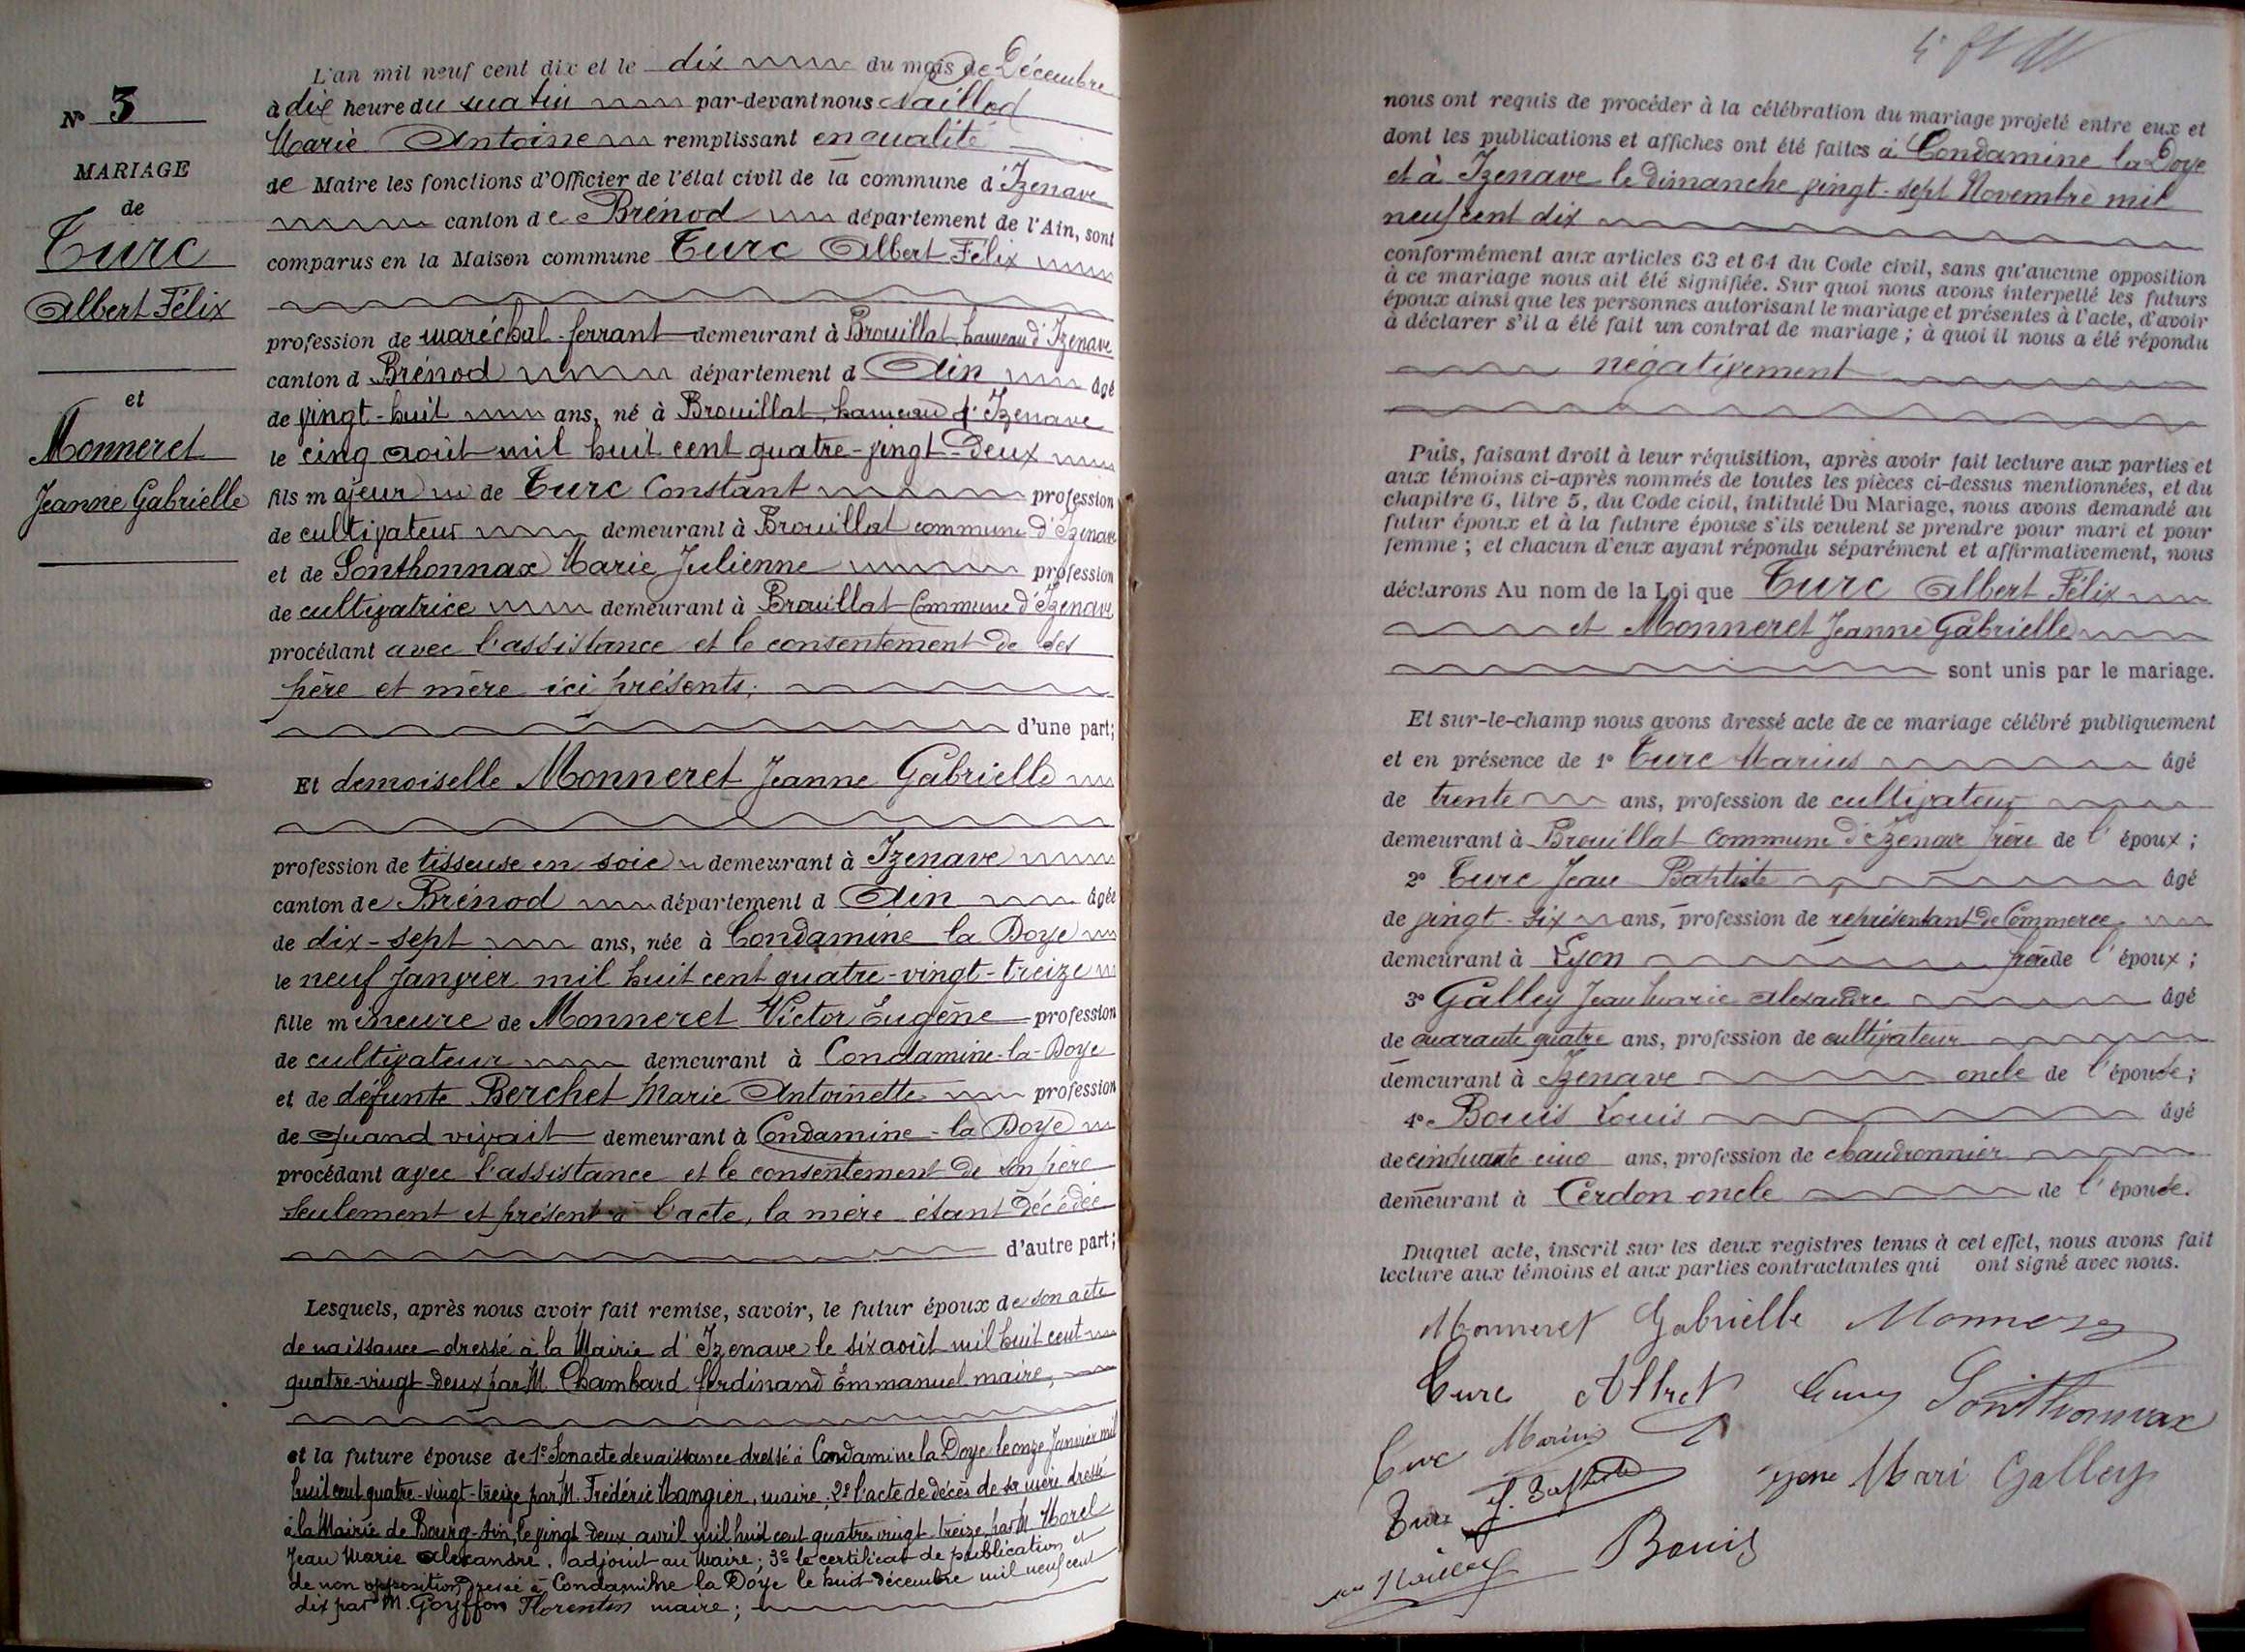 N° 3
MARIAGE
de
Turc
Albert Félix
et
Monneret
Jeanne Gabrielle
L'an mil neuf cent dix et le dix du mois de Décembre
à dix heure du matin par-devant nous Naillod
Marie Antoine remplissant en qualité
de Maire les fonctions d'Officier de l'état civil de la commune d'Izenave
canton de Brénod département de l'Ain, sont
comparus en la Maison commune Turc Albert Félix
profession de maréchal-ferrant demeurant à Brouillat, hameau d'Izenave
canton d Brénod département d Ain âgé
de vingt-huit ans, né à Brouillat, hameau d'Izenave
le cinq août mil huit cent quatre-vingt-deux
fils majeur de Turc Constant profession
de cultivateur demeurant à Brouillat commune d'Izenave
et de Sonthonnax Marie Julienne profession
de cultivatrice demeurant à Brouillat Commune d'Izenave
procédant avec l'assistance et le consentement de ses
père et mère ici présents;
d'une part;
Et demoiselle Monneret Jeanne Gabrielle
profession de tisseuse en soie demeurant à Izenave
canton de Brénod département d Ain âgée
de dix-sept ans, née à Condamine la Doye
le neuf Janvier mil huit cent quatre-vingt-treize
fille mineure de Monneret Victor Eugène profession
de cultivateur demeurant à Condamine-la-Doye
et de défunte Berchet Marie Antoinette profession
de quand vivait demeurant à Condamine-la Doye
procédant avec l'assistance et le consentement de son père
seulement et présent à l'acte, la mère étant décédée
d'autre part;
Lesquels, après nous avoir fait remise, savoir, le futur époux de son acte
de naissance dressé à la Mairie d'Izenave le six août mil huit cent
quatre-vingt-deux par M. Chambard ferdinand Emmanuel maire,
et la future épouse de 1° Son acte de naissance dressé à Condamine la Doye le onze Janvier mil
huit cent quatre-vingt-treize par M. Frédéric Mangier, maire; 2° l'acte de décès de sa mère dressé
à la Mairie de Bourg-Ain, le vingt deux avril mil huit cent quatre vingt treize, par M. Morel
Jean Marie Alexandre, adjoint au Maire; 3° le certificat de publication et
de non opposition dressé à Condamine la Doye le huit décembre mil neuf cent
dix par M. Goyffon Florentin maire;
nous ont requis de procéder à la célébration du mariage projeté entre eux et
dont les publications et affiches ont été faites à Condamine la Doye
et à Izenave le dimanche vingt-sept Novembre mil
neuf cent dix
conformément aux articles 63 et 64 du Code civil, sans qu'aucune opposition
à ce mariage nous ait été signifiée. Sur quoi nous avons interpellé les futurs
époux ainsi que les personnes autorisant le mariage et présentes à l'acte, d'avoir
à déclarer s'il a été fait un contrat de mariage; à quoi il nous a été répondu
négativement
Puis, faisant droit à leur réquisition, après avoir fait lecture aux parties et
aux témoins ci-après nommés de toutes les pièces ci-dessus mentionnées, et du
chapitre 6, titre 5, du Code civil, intitulé Du Mariage, nous avons demandé au
futur époux et à la future épouse s'ils veulent se prendre pour mari et pour
femme; et chacun d'eux ayant répondu séparément et affirmativement, nous
déclarons Au nom de la Loi que Turc Albert Félix
et Monneret Jeanne Gabrielle
sont unis par le mariage.
Et sur-le-champ nous avons dressé acte de ce mariage célébré publiquement
et en présence de 1° Turc Marius âgé
de trente ans, profession de cultivateur
demeurant à Brouillat commune d'Izenave frère de l'époux;
2° Turc Jean Baptiste âgé
de vingt-six ans, profession de représentant de Commerce
demeurant à Lyon frère de l'époux;
3° Galley Jean Marie Alexandre âgé
de quarante quatre ans, profession de cultivateur
demeurant à Izenave oncle de l'épouse;
4° Bouis Louis âgé
de cinquante cinq ans, profession de chaudronnier
demeurant à Cerdon oncle de l'épouse.
Duquel acte, inscrit sur les deux registres tenus à cet effet, nous avons fait
lecture aux témoins et aux parties contractantes qui ont signé avec nous.
Monneret Gabrielle Monneret
Turc Albert Sonthonnax
Turc Marius
Turc J. Baptiste Mari Galley
Bouis